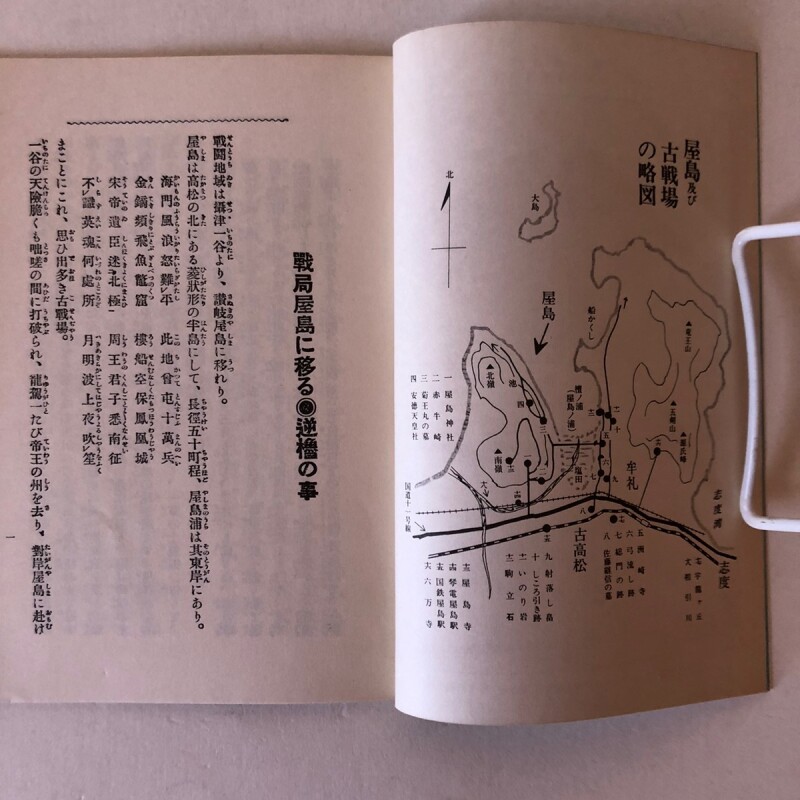 屋島及び
古戦場
の略図
北
大島
屋島
船かくし
▲竜王山
▲五剣山
▲源氏峰
檀ノ浦
(屋島ノ浦)
▲北嶺
池
四
三
▲南嶺
塩田
五
六
七
八
九
牟礼
志度湾
志度
古高松
国道十一号線
一 屋島神社
二 赤牛崎
三 菊王丸の墓
四 安徳天皇社
五 洲崎寺
六 弓流し跡
七 総門の跡
八 佐藤継信の墓
九 射落し畠
十 しころ引き跡
いのり岩
駒立石
屋島寺
琴電屋島駅
国鉄屋島駅
六万寺
戰局屋島に移る◎逆櫓の事
戰鬪地域は攝津一谷より、讃岐屋島に移れり。
屋島は高松の北にある菱狀形の半島にして、長徑五十町程、屋島浦は其東岸にあり。
海門風浪怒難レ平 此地曾屯十萬兵
金鏑頻飛魚鼈窟 樓船空保鳳凰城
宋帝遺臣迷北極 周王君子悉南征
不レ識英魂何處所 月明波上夜吹レ笙
まことにこれ、思ひ出多き古戰場。
一谷の天險脆くも咄嗟の間に打破られ、龍駕一たび帝王の州を去り、對岸屋島に赴け
一